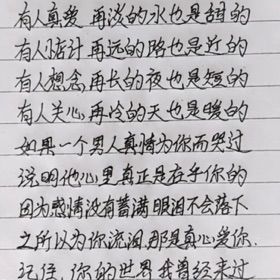 有人真爱 再淡的水也是甜的
有人惦记 再远的路也是近的
有人想念 再长的夜也是短的
有人关心 再冷的天也是暖的
如果一个男人真情为你而哭过
说明他心里真正是在乎你的
因为感情没有蓄满 眼泪不会落下
之所以为你流泪 那是真心爱你.
记住，你的世界 我曾经来过